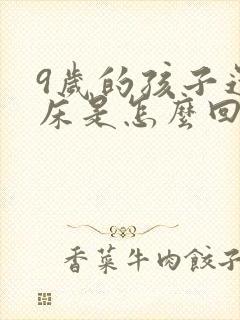 9歲的孩子
床是怎麼回
香菜牛肉餃子